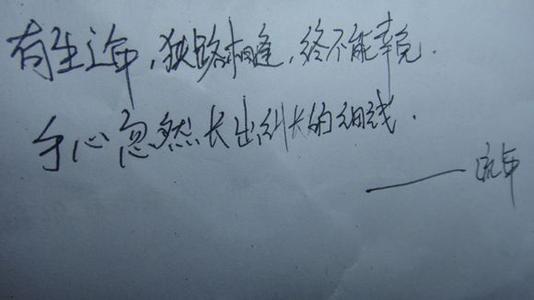 有生之年，狭路相逢，终不能幸免.
手心忽然长出纠长的细线.
——流年